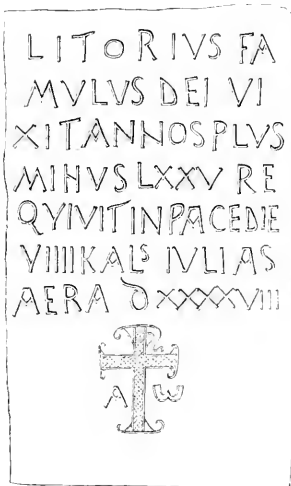 LITORIVS FA
MVLVS DEI VI
XIT ANNOS PLVS
MINVS LXXV RE
QVIVIT IN PACE DIE
VIIII KALˢ IVLIAS
AERA D XXXXVIII
A ω